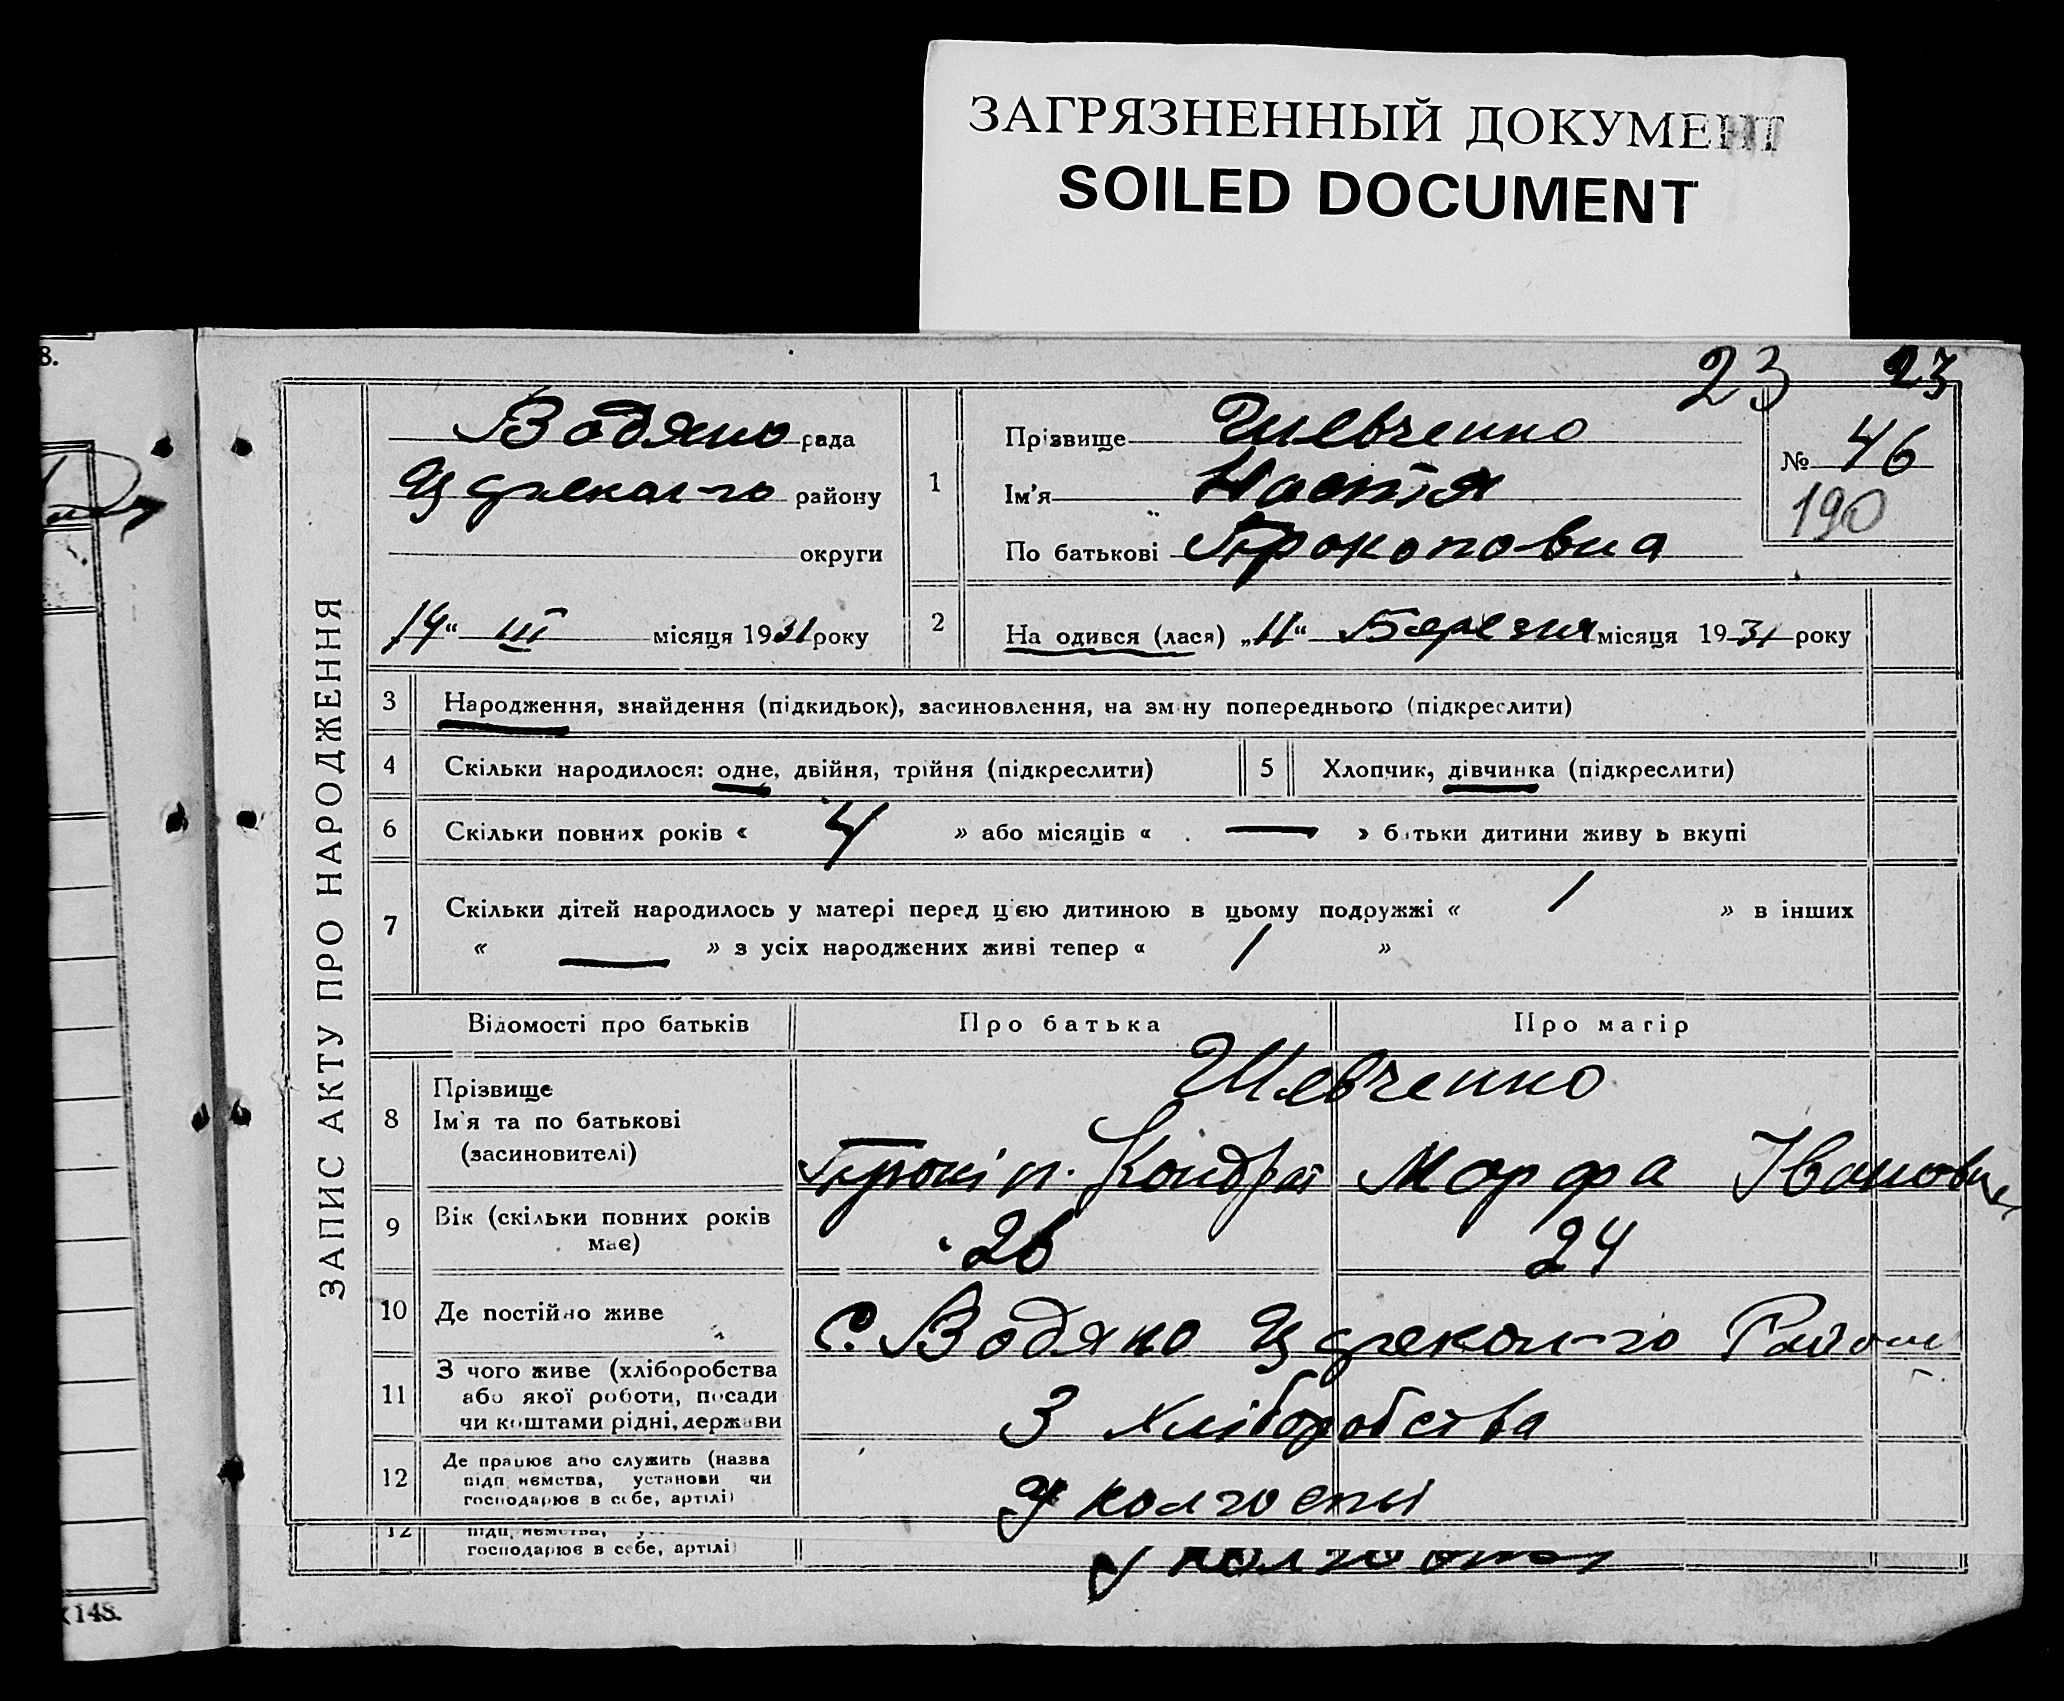 ЗАГРЯЗНЕННЫЙ ДОКУМЕНТ
SOILED DOCUMENT
8.
23 23
ЗАПИС АКТУ ПРО НАРОДЖЕННЯ
Водяно рада
району
округи
14 " III місяця 1931 року
1
Прізвище Шевченко
Ім'я Настя
По батькові Прокоповна
№ 46
190
2
На одився (лася) „11" Березня місяця 1931 року
3 Народження, знайдення (підкидьок), засиновлення, на зміну попереднього (підкреслити)
4 Скільки народилося: одне, двійня, трійня (підкреслити)
5 Хлопчик, дівчинка (підкреслити)
6 Скільки повних років « 4 » або місяців « — » батьки дитини живу ь вкупі
7 Скільки дітей народилось у матері перед цією дитиною в цьому подружжі « 1 » в інших
« — » з усіх народжених живі тепер « 1 »
Відомості про батьків Про батька Про матір
8 Прізвище
Ім'я та по батькові
(засиновителі)
Шевченко
Прокіп. Кондрат Марфа Івановна
9 Вік (скільки повних років має) 26 24
10 Де постійно живе С. Водяно Район
11 З чого живе (хліборобства
або якої роботи, посади
чи коштами рідні, держави
З хліборобства
12 Де працює або служить (назва
підприємства, установи чи
господарює в себе, артілі)
У колгоспі
12 підприємства,
господарює в себе, артілі)
У колгоспі
148.